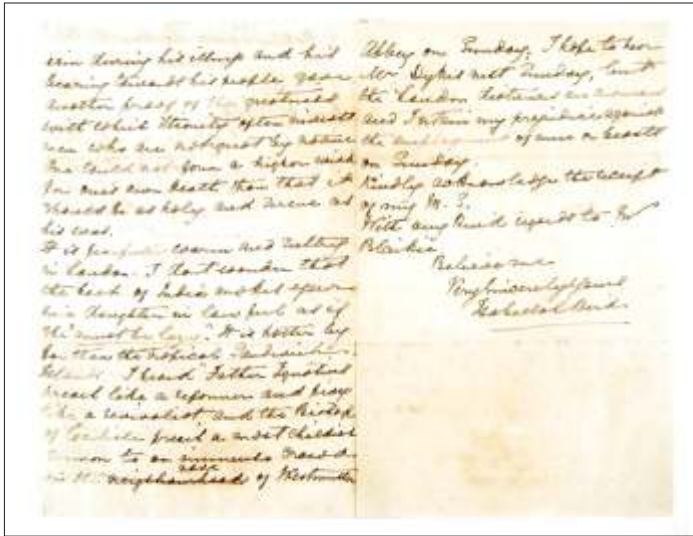 during his illness and his
bearing towards his people gave
another proof of the greatness
with which Eternity often invests
men who are not great by nature
One could not form a higher wish
for one's own death than that it
should be as holy and serene as
his was.
It is warm and sultry
in London. I don't wonder that
the heat of India makes
his daughter in law feel as if
she "must be lazy". It is hotter by
far than the tropical Sandwich
Islands. I heard Father Ignatius
preach like a reformer and pray
like a revivalist and the Bishop
of Carlisle preach a most childish
sermon to an immense crowd
in the nave of Westminster
Abbey on Sunday. I hope to hear
Mr Dykes next Sunday, but
the London distances are
and I retain my prejudice against
the employment of men or beasts
on Sunday.
Kindly acknowledge the receipt
of my M. S.
With very kind regards to Mr
Blaikie
Believe me
Very sincerely yours
Isabella L Bird